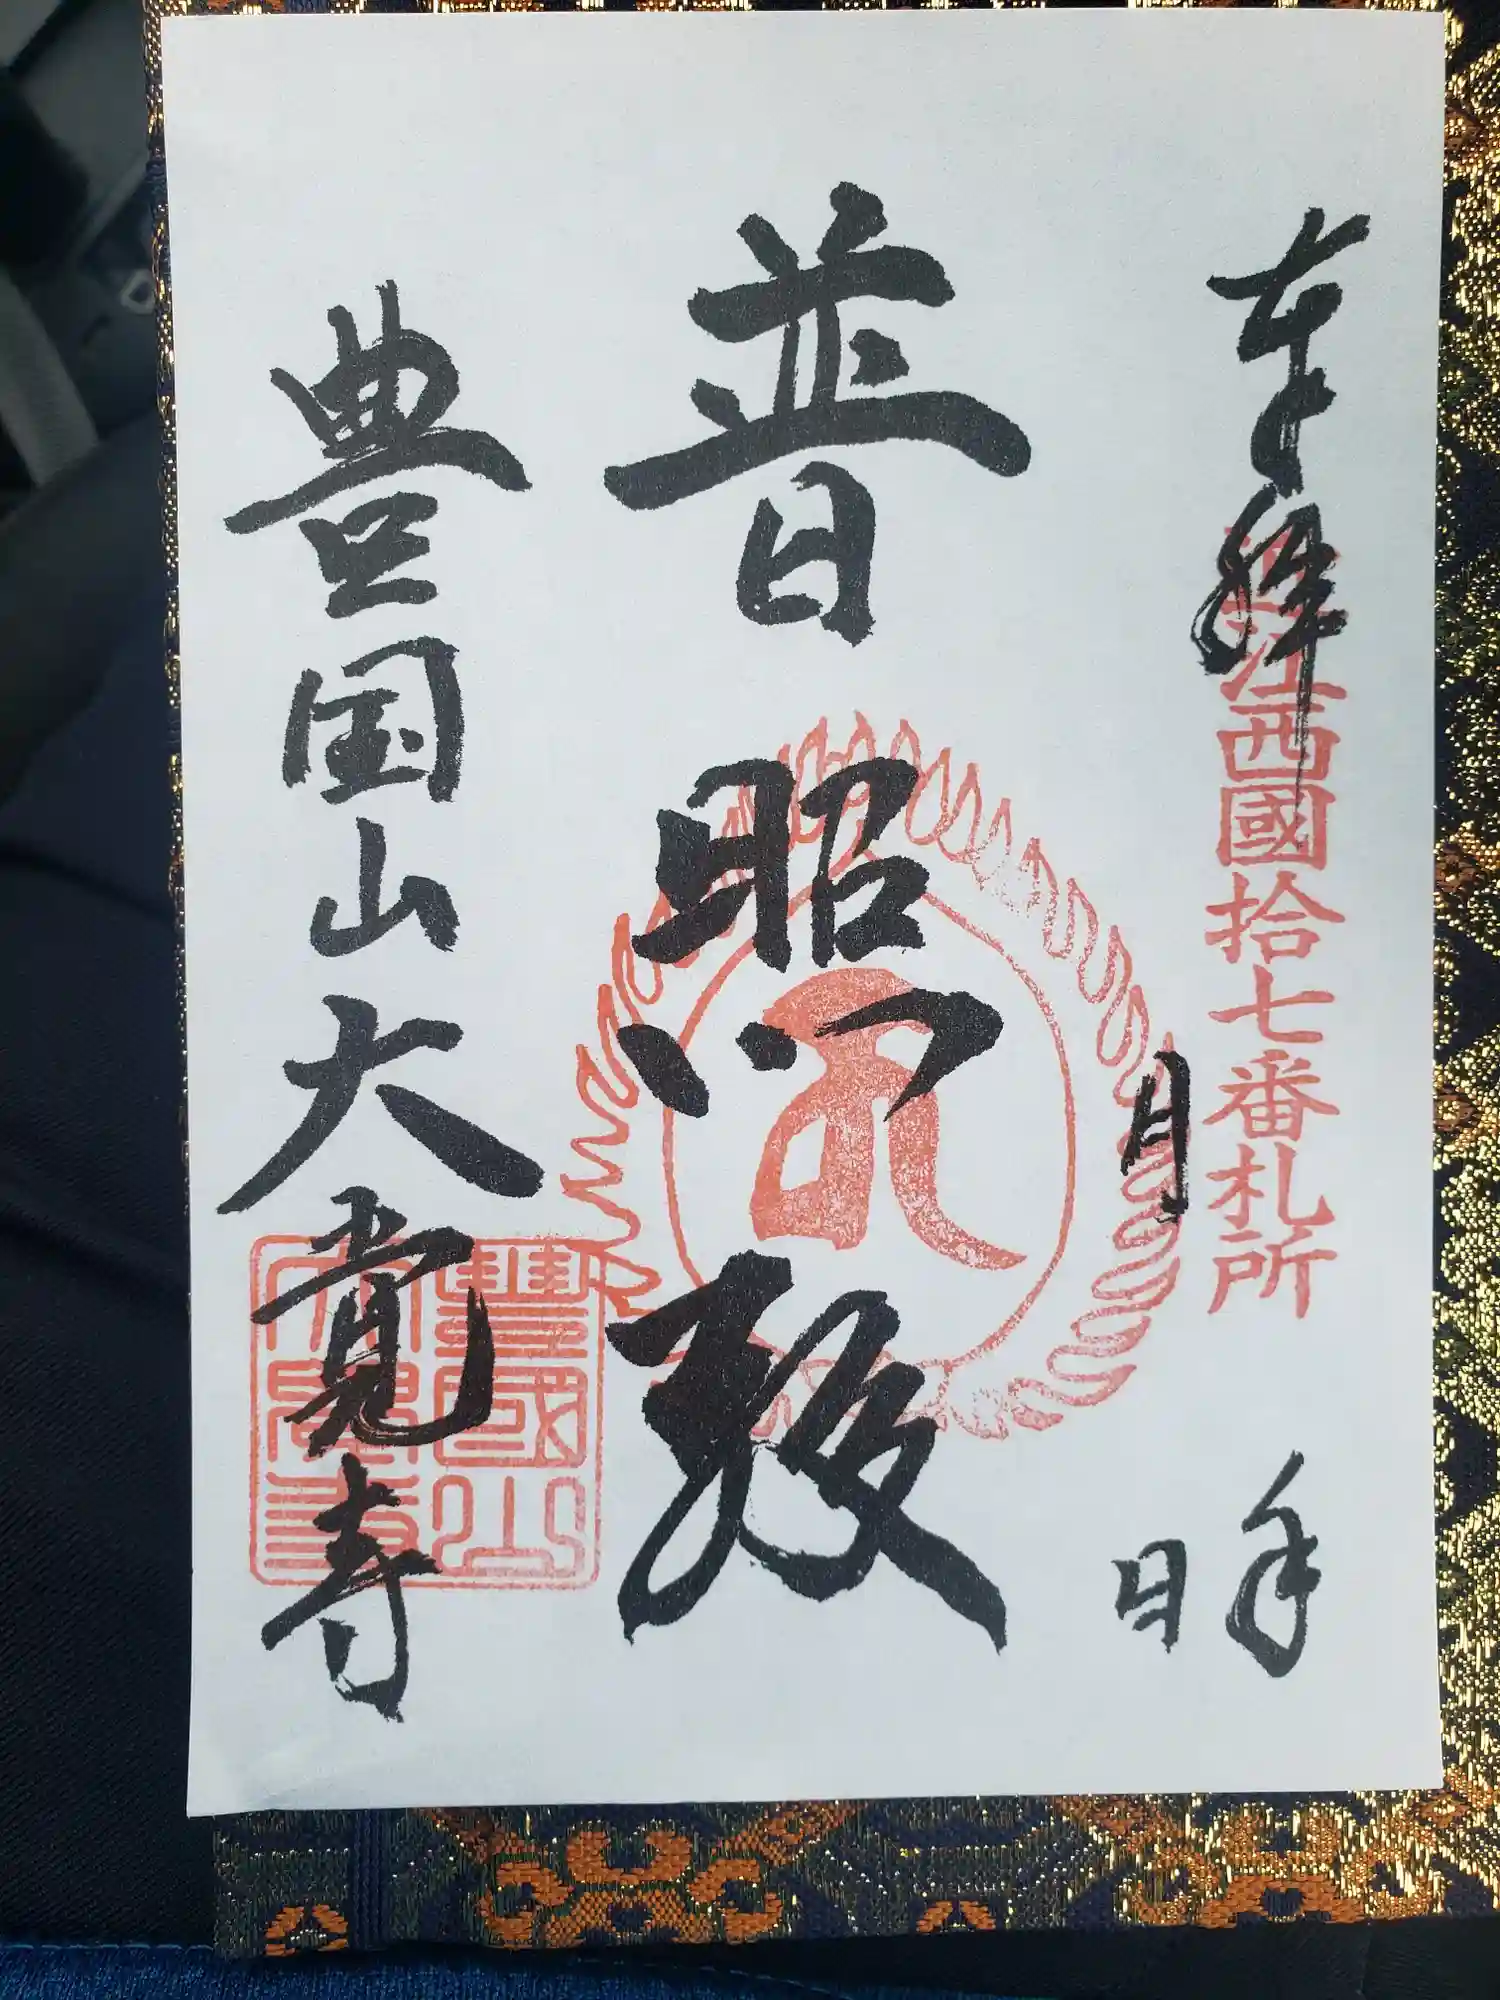 奉拝
近江西國拾七番札所
年
月
日
普照殿
豊国山大覚寺
豐國山
大覺寺